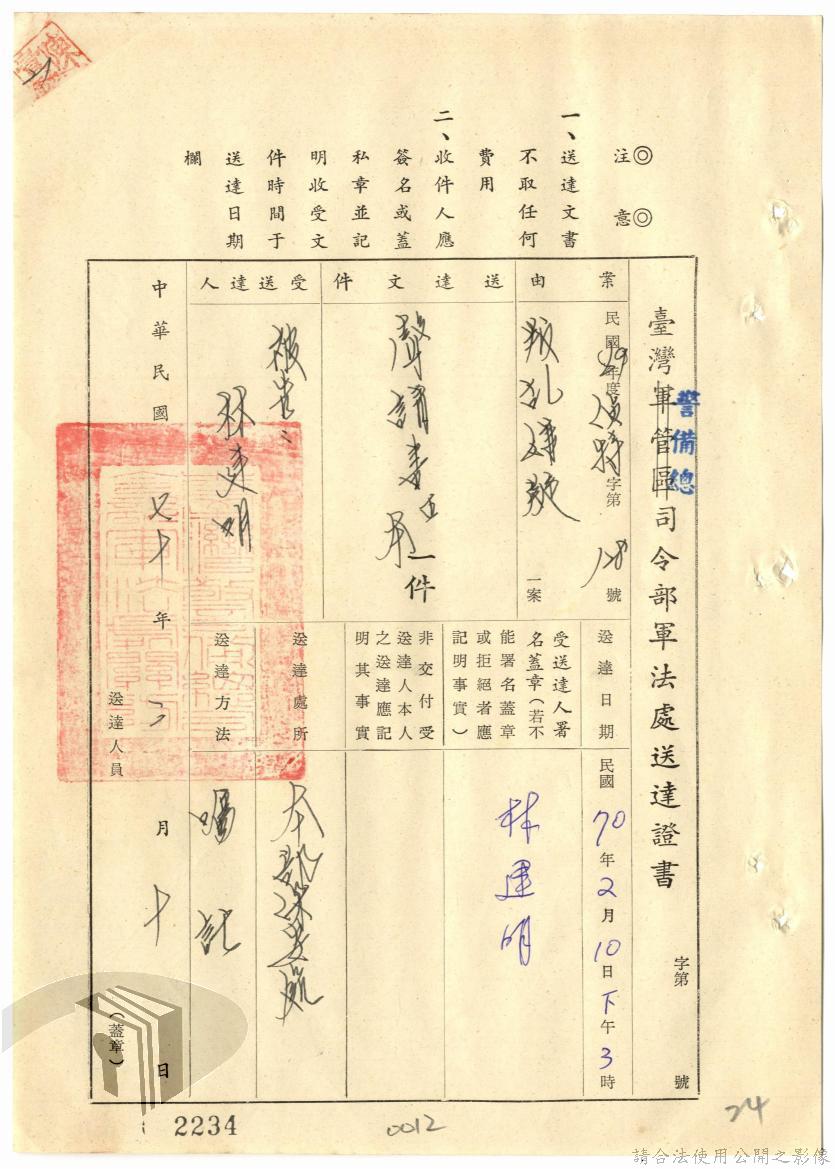 ◎注意◎
一、送達文書
不取任何
費用
二、收件人應
簽名或蓋
私章並記
明收受文
件時間于
送達日期
欄
臺灣軍管區司令部軍法處送達證書
警備總
字第 號
案由
民國69年度 字第 128 號
叛亂嫌疑
一案
送達文件
聲請書
一件
受送達人
被告
林建明
送達日期
民國70年2月10日下午3時
受送達人署
名蓋章(若不
能署名蓋章
或拒絕者應
記明事實)
林建明
非交付受
送達人本人
之送達應記
明其事實
送達處所
送達方法
囑託
中華民國七十年二月十日
送達人員
(蓋章)
2234
0012
24
請合法使用公開之影像